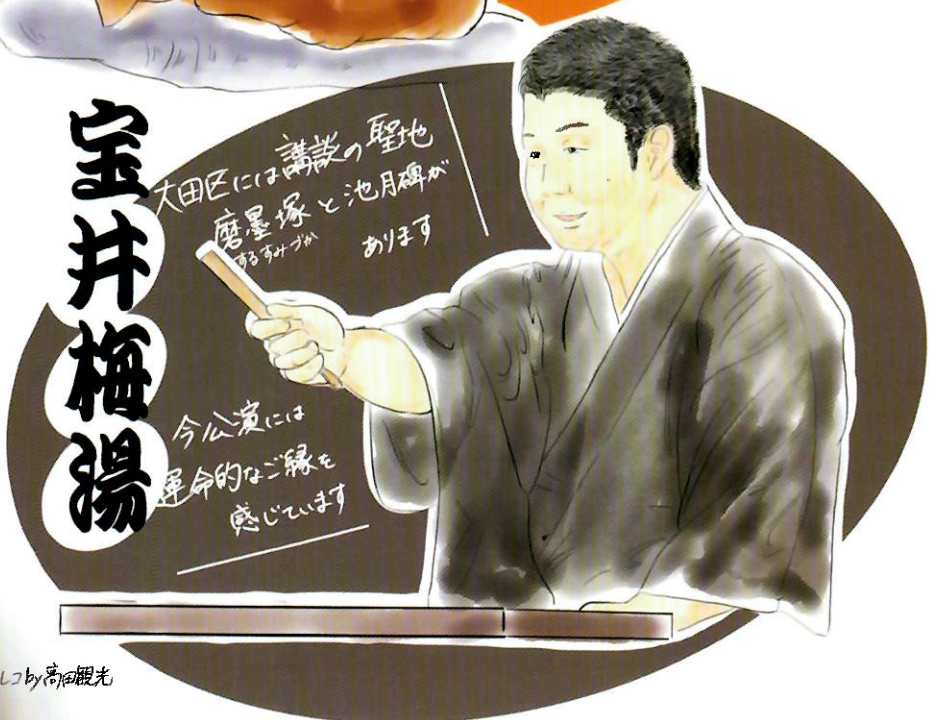 宝井梅湯
大田区には講談の聖地
磨墨塚と池月碑が
するすみづか
あります
今公演には
運命的なご縁を
感じています
by高田観光